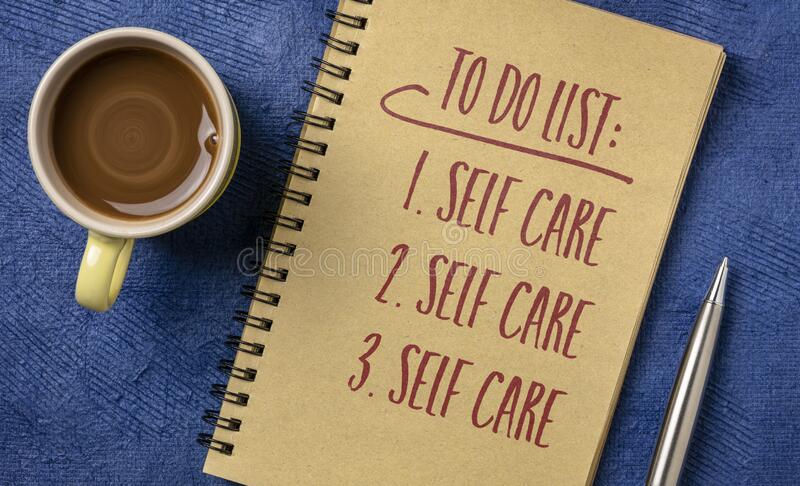 TO DO LIST:
1. SELF CARE
2. SELF CARE
3. SELF CARE
dreamstime